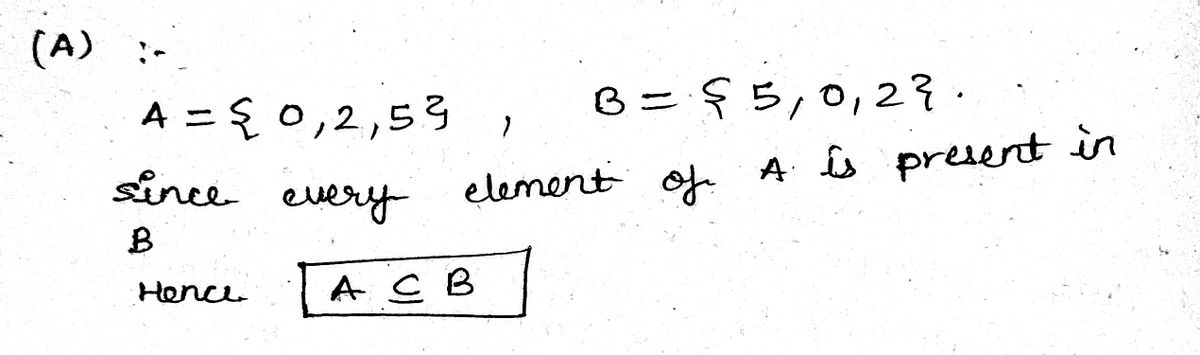 (A) :-
A = { 0,2,5} , B = { 5,0,2} .
since every element of A is present in
B
Hence A ⊆ B